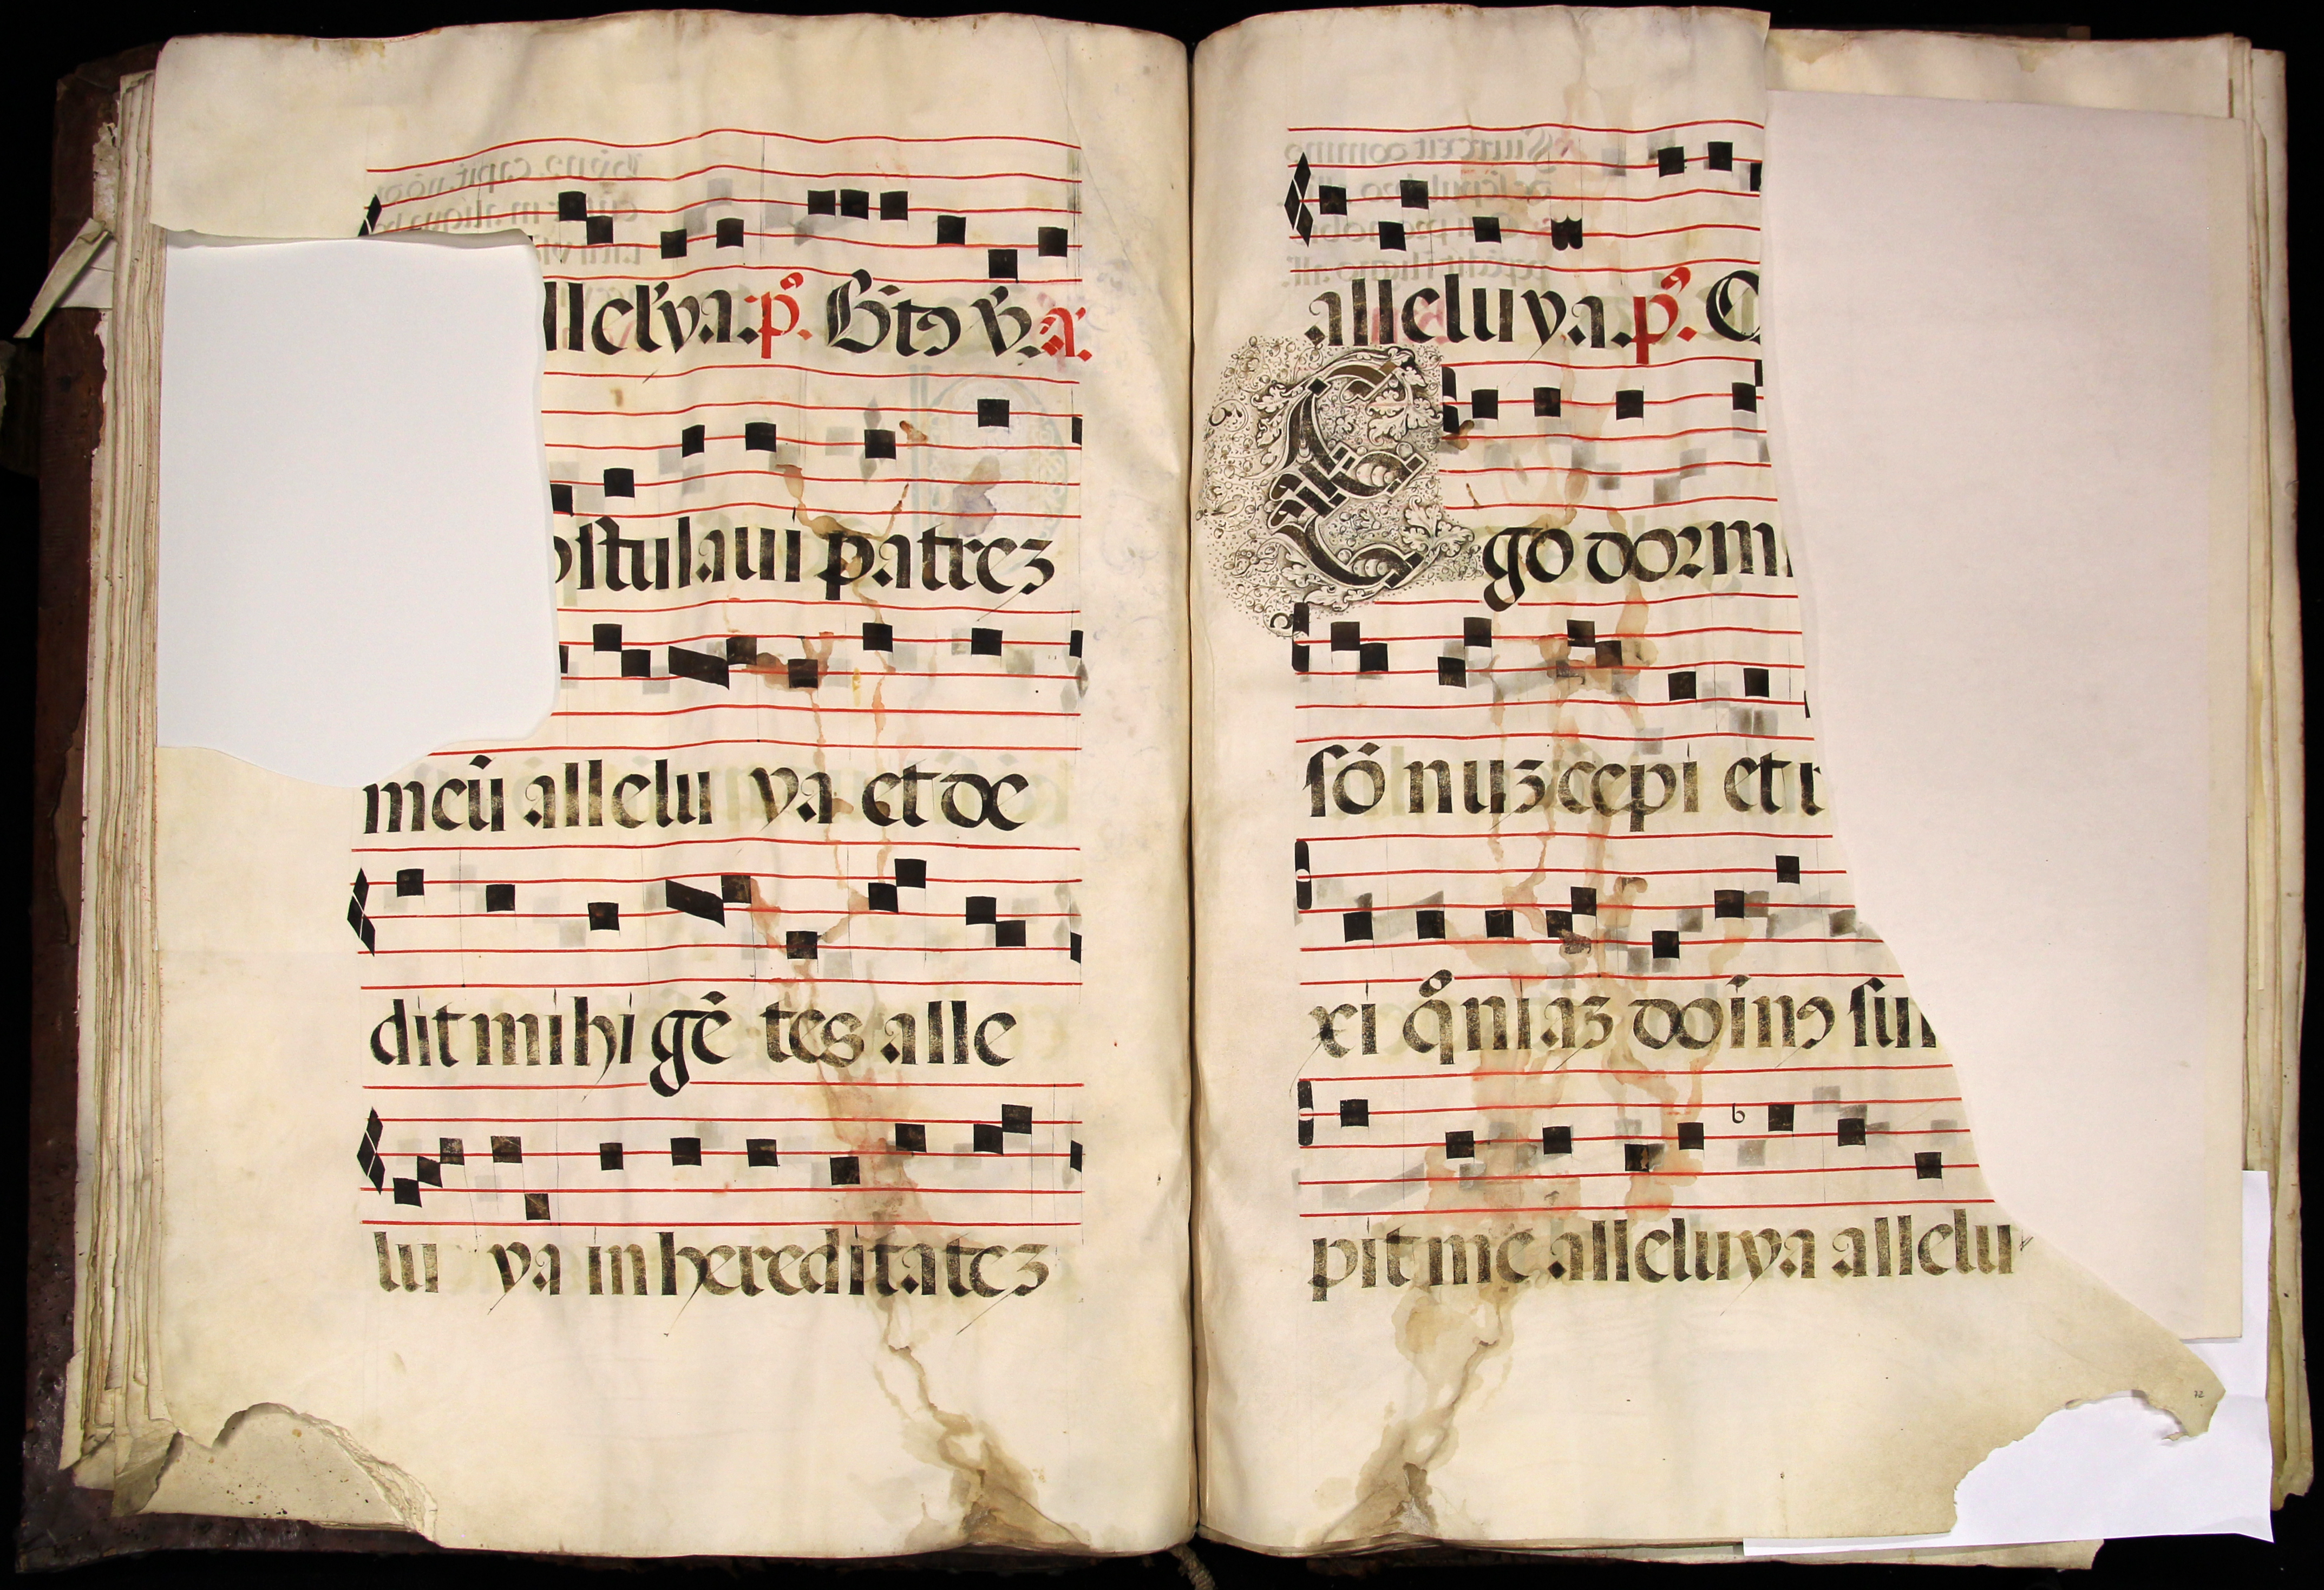 llel'ya. p̃s. Bt̃ꝯ vr̃. a.
ostulaui patreʒ
meũ allelu ya et de
dit mihi gẽ tes alle
lu ya in hereditateʒ
alleluya. p̃s. C
Ego dormi
sõ nuʒ cepi et r
xi qͦniaʒ doĩnꝯ sui
pit me alleluya allelu
72